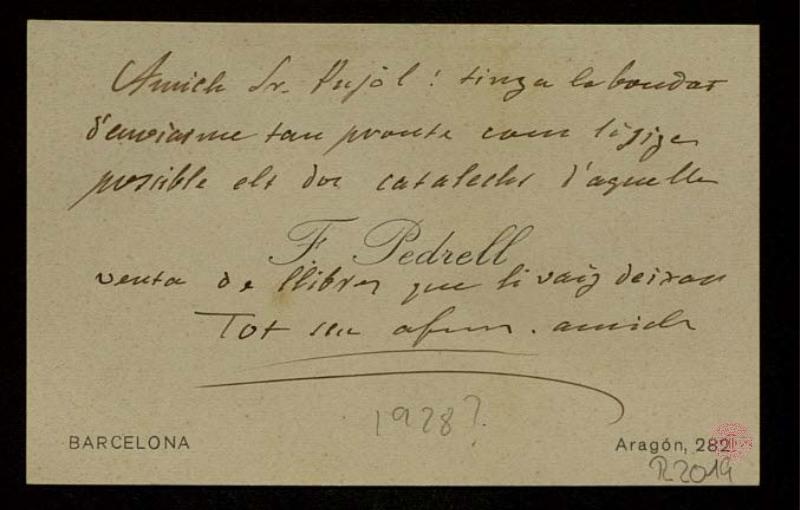 Amich Sr. Pujòl: tinga la bondat
d'enviarme tan pronte com li siga
possible els dos catalechs d'aquella
F. Pedrell
venta de llibres que li vaig deixar
Tot seu afm. amich
1928?
BARCELONA
Aragón, 282
R2019